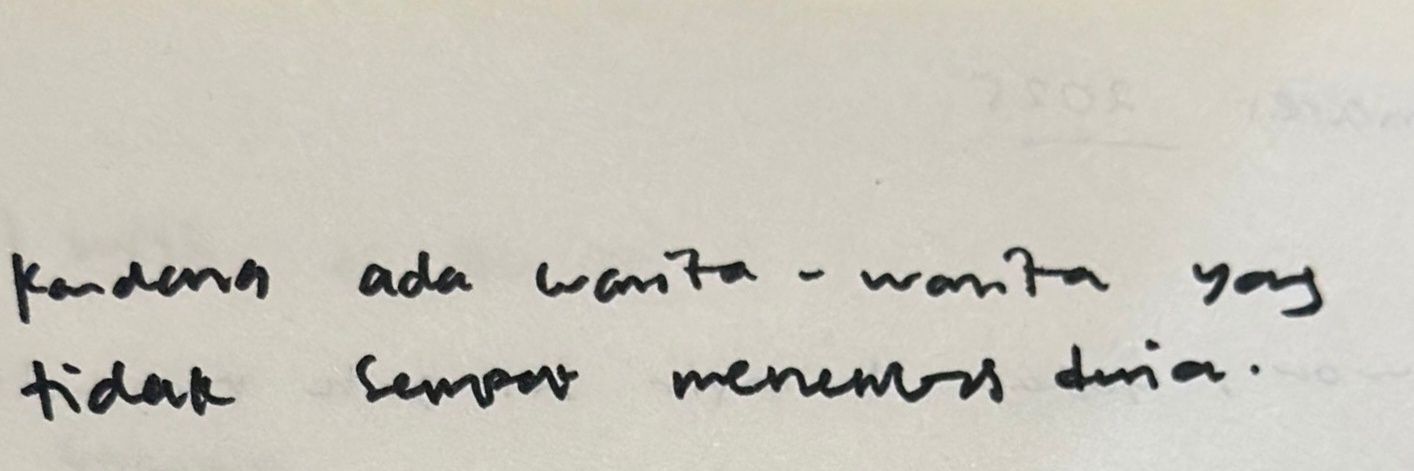 kandang ada wanita - wanita yang
tidak sempat dunia.